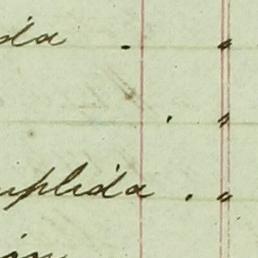 da . "
. "
uplida . "